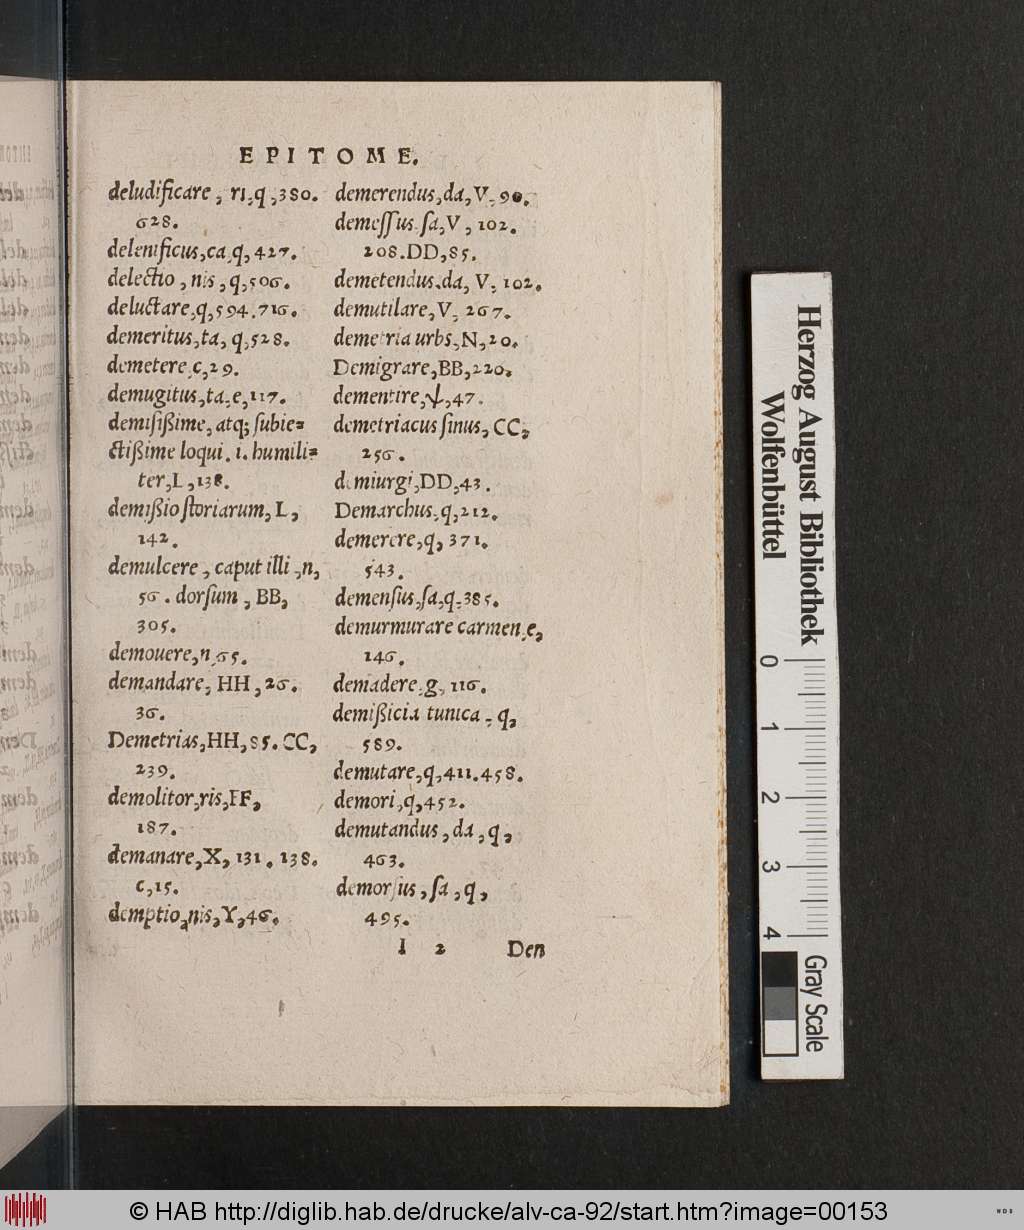 EPITOME.
deludificare, ri, q, 380.
628.
delenificus, ca, q, 427.
delectio, nis, q, 506.
deluctare, q, 594. 716.
demeritus, ta, q, 528.
demetere, c, 29.
demugitus, ta, e, 117.
demisißime, atq; ſubie=
ctißime loqui. i. humili=
ter, L, 138.
demißio ſtoriarum, L,
142.
demulcere, caput illi, n,
56. dorſum, BB,
305.
demouere, n, 65.
demandare, HH, 26.
36.
Demetrias, HH, 85. CC,
239.
demolitor, ris, FF,
187.
demanare, X, 131. 138.
c, 15.
demptio, nis, Y, 46.
demerendus, da, V, 90.
demeſſus, ſa, V, 102.
208. DD, 85.
demetendus, da, V, 102.
demutilare, V, 267.
demetria urbs, N, 20.
Demigrare, BB, 220.
dementire, ψ, 47.
demetriacus ſinus, CC,
256.
demiurgi, DD, 43.
Demarchus, q, 212.
demerere, q, 371.
543.
demenſus, ſa, q, 385.
demurmurare carmen, e,
146.
demadere, g, 116.
demißicia tunica, q,
589.
demutare, q, 411. 458.
demori, q, 452.
demutandus, da, q,
463.
demorſus, ſa, q,
495.
I 2 Den
Herzog August Bibliothek
Wolfenbüttel
0 1 2 3 4
Gray Scale
© HAB http://diglib.hab.de/drucke/alv-ca-92/start.htm?image=00153
WDB